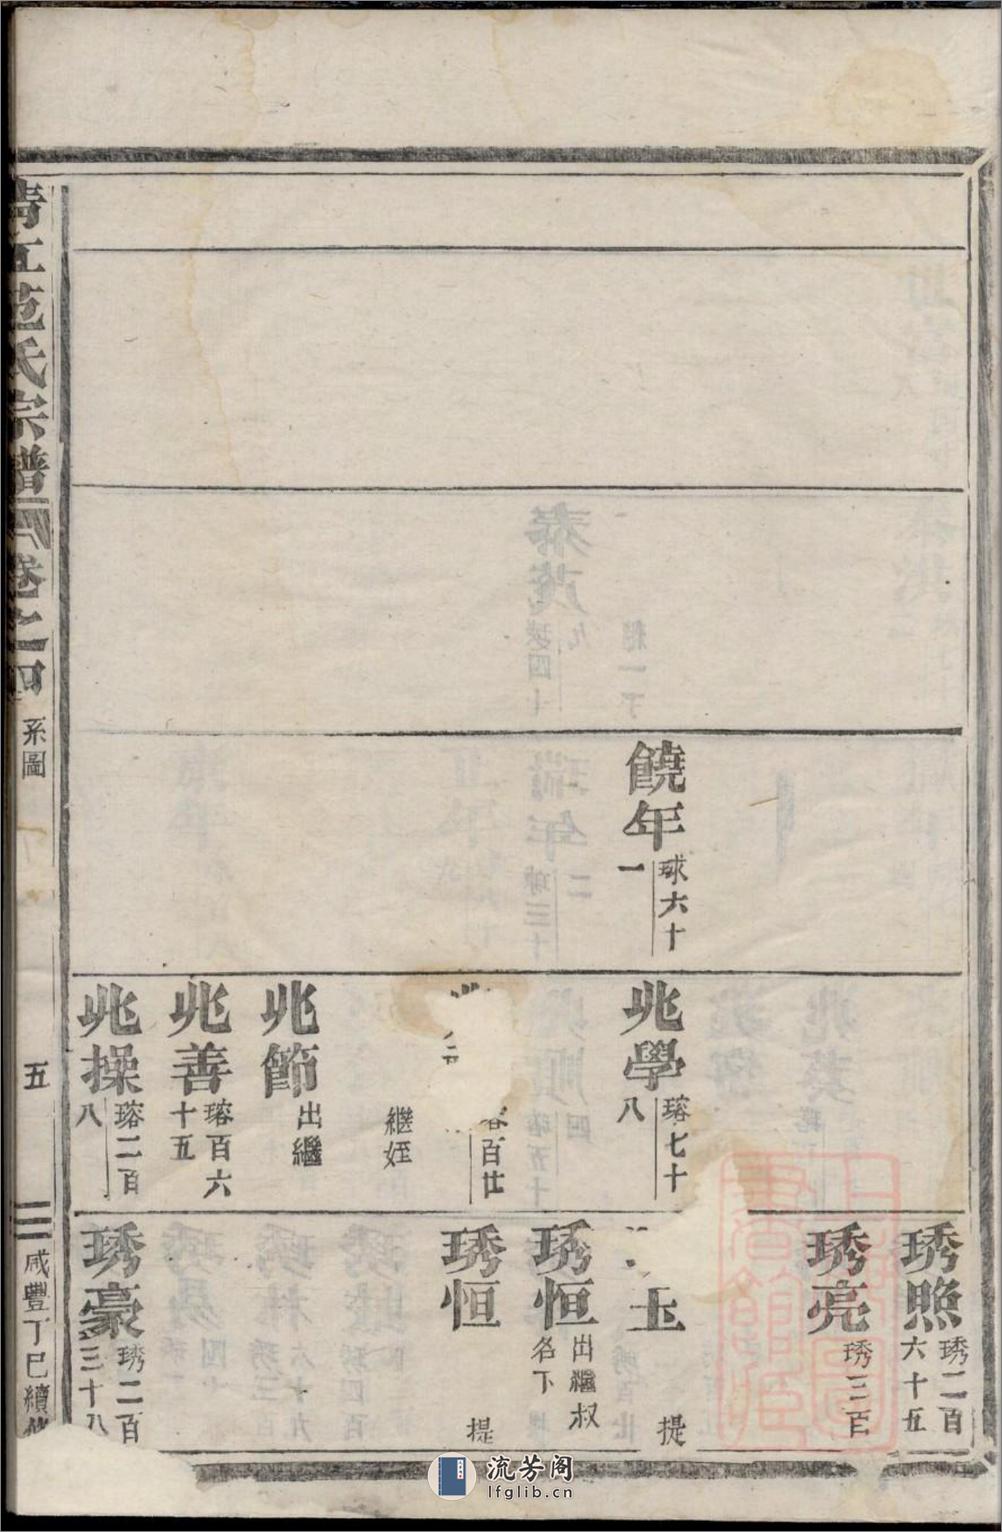 饒年
球六十
一
兆學
瑢七十
八
百廿
繼姪
兆節
出繼
兆善
瑢百六
十五
兆操
瑢二百
八
琇照
琇二百
六十五
琇亮
琇三百
玉
提
琇恒
出繼叔
名下
琇恒
提
琇豪
琇二百
三十八
范氏宗譜
卷之四
系圖
五
咸豐丁巳續修
流芳阁
lfglib.cn